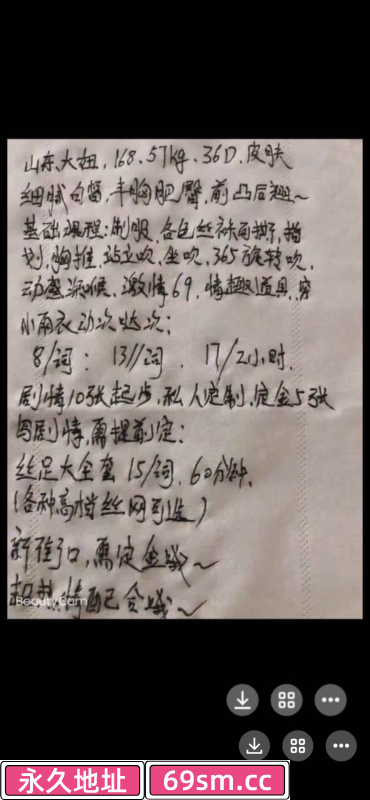 山东大妞，168.57kg.36D.皮肤
细腻白皙，丰胸肥臀，前凸后翘～
基础课程：制服，各色丝袜可撕，指
划，胸推，站立吹，坐吹，365旋转吹，
动感深喉，激情69，情趣道具，穿
小雨衣动次哒次；
8/词：13//词．17/2小时．
剧情10张起步，私人定制，定金5张
剧情，需提前定：
丝足大全套 15/词．60分钟．
（各种高档丝网
新街口，需定金哦～
情配合哦～
BeautyCam
永久地址 69sm.cc